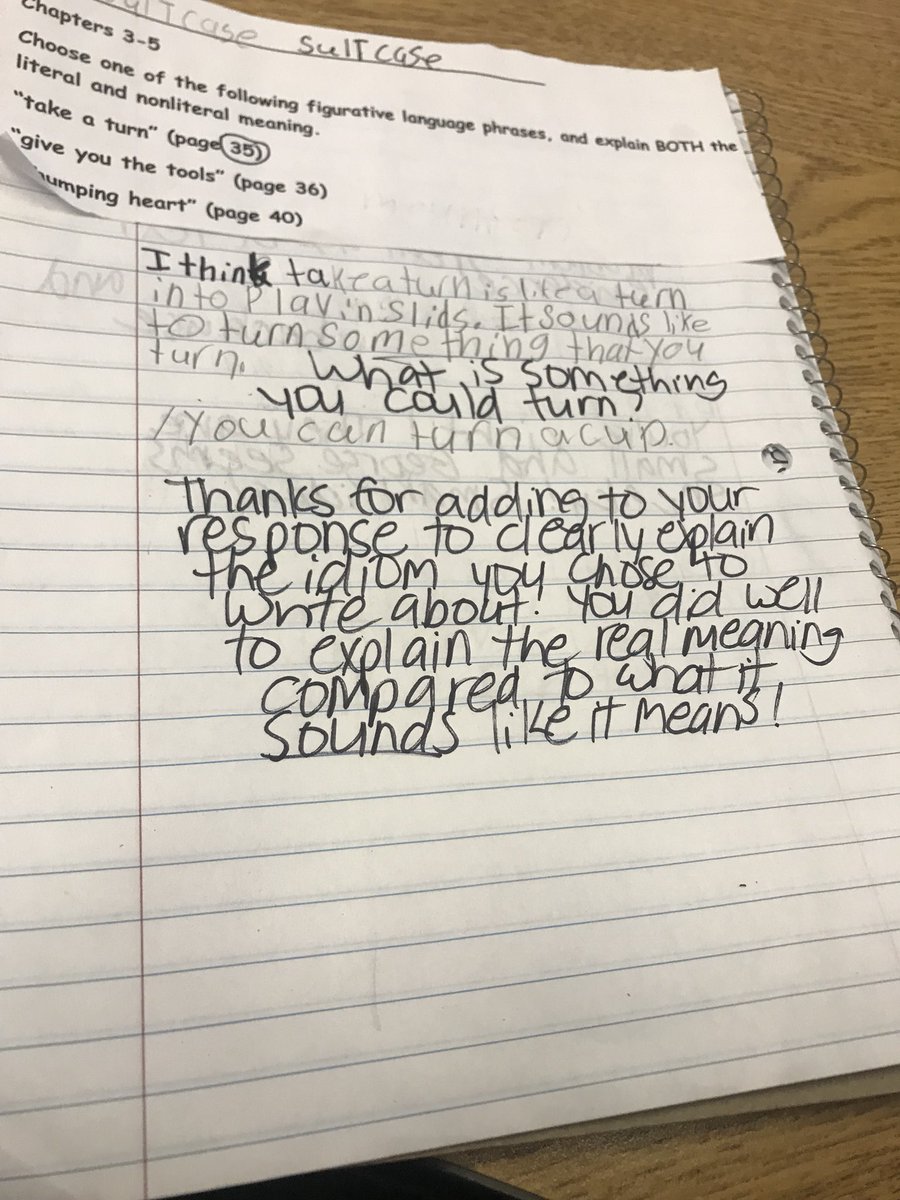 suitcase suitcase
Chapters 3-5
Choose one of the following figurative language phrases, and explain BOTH the
literal and nonliteral meaning.
"take a turn" (page 35)
"give you the tools" (page 36)
heart" (page 40)
I think take a turn is like a turn
into Play in slids. It sounds like
to turn something that you
turn. What is something
you could turn?
/ You can turn a cup.
small and George seems
Thanks for adding to your
response to clearly explain
the idiom you chose to
write about! You did well
to explain the real meaning
compared to what it
sounds like it means!